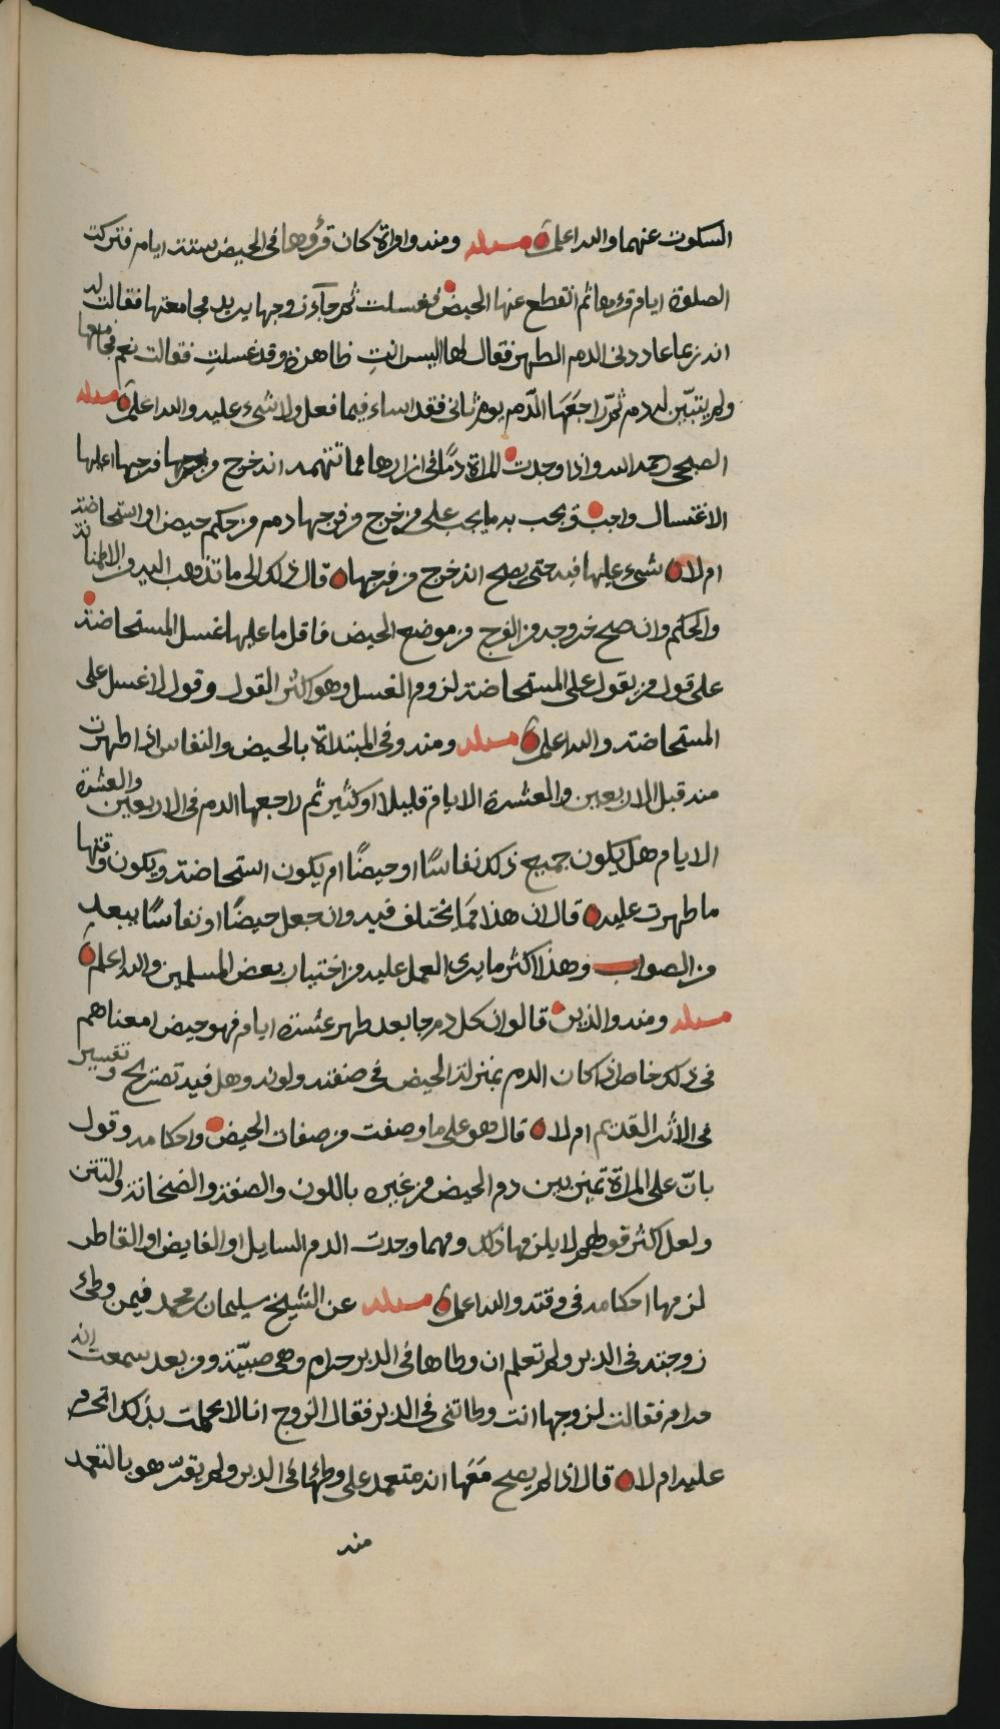 السكوت عنهما والله اعلم مسئلة ومنه وامراة كان قرؤها في الحيض ستة ايام فتركت
الصلوة ايام قرءها ثم انقطع عنها الحيض فغسلت ثم جآء زوجها يريد مجامعتها فقالت له
انه ربما عاددني الدم الطهر فقال لها اليس انتِ طاهرة وقد غسلتِ فقالت نعم فجامعها
ولم يتبيّن له دم ثم راجعَهَا الدّم يوم ثاني فقد اساء فيما فعل ولا شيء عليه والله اعلم مسئلة
الصبحي رحمه الله واذا وجدت المراة دمًا في ازارها مما تتهمه انه خرج من فرجها اعليها
الاغتسال واجب ويجب به ما يجب على من خرج من فرجها دم من حكم حيض او استحاضة
ام لا شيء عليها فيه حتى يصح انه خرج من فرجها قال ذلك الى ما تذهب اليه من الاطمئنانة
والحكم وان صح خروجه من الفرج من موضع الحيض فاقل ما عليها غسل المستحاضة
على قول من يقول على المستحاضة لزوم الغسل وهو اكثر القول وقول لا غسل على
المستحاضة والله اعلم مسئلة ومنه وفي المبتداة بالحيض والنفاس اذا طهرت
منه قبل الاربعين والعشرة الايام قليلا او كثير ثم راجعها الدم في الاربعين والعشرة
الايام هل يكون جميع ذلك نفاسًا او حيضًا ام يكون استحاضة ويكون وقتها
ما طهرت عليه قال ان هذا مما يختلف فيه وان جعل حيضًا او نفاسًا لم يبعد
من الصواب وهذا اكثر ما يرى العمل عليه من اختيار بعض المسلمين والله اعلم
مسئلة ومنه والذين قالوا ان كل دم جا بعد طهر عشرة ايام فهو حيض امعناهم
في ذلك خاص اذا كان الدم بمنزلة الحيض في صفته ولونه وهل فيه تصريح وتفسير
في الاثر القديم ام لا قال هو على ما وصفت من صفات الحيض واحكامه وقول
بانّ على المراة تميز بين دم الحيض من غيره باللون والصفة والضخانة والنتن
ولعل اكثر قولهم لا يلزمها ذلك ومهما وجدت الدم السايل او الفايض او القاطر
لزمها احكامه في وقته والله اعلم مسئلة عن الشيخ سليمان بن محمد فيمن وطئ
زوجته في الدبر ولم تعلم ان وطاها في الدبر حرام وهي صبيّة ومن بعد سمعت انه
حرام فقالت لزوجها انت وطاتني في الدبر فقال الزوج انا لا عملت بذلك اتحرم
عليه ام لا قال اذا لم يصح مَعَها انه متعمد على وطئها في الدبر ولم يقرّ هو بالتعمد
منه